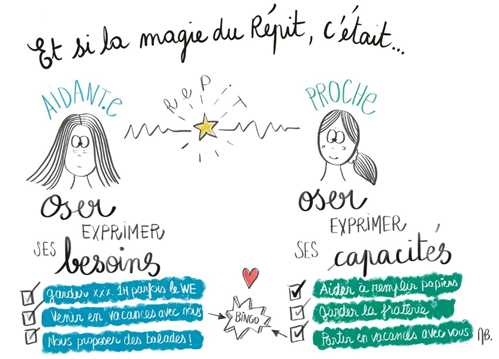 Et si la magie du Répit, c'était...
AIDANT.E
RePiT
PROCHE
Oser
EXPRIMER
SES
besoins
Garder xxx 1H parfois le WE
Venir en vacances avec nous
Nous proposer des balades!
BINGO
oser
EXPRIMER
SES
capacités
Aider à remplir papiers
Garder la fraterie
Partir en vacances avec vous
AB.